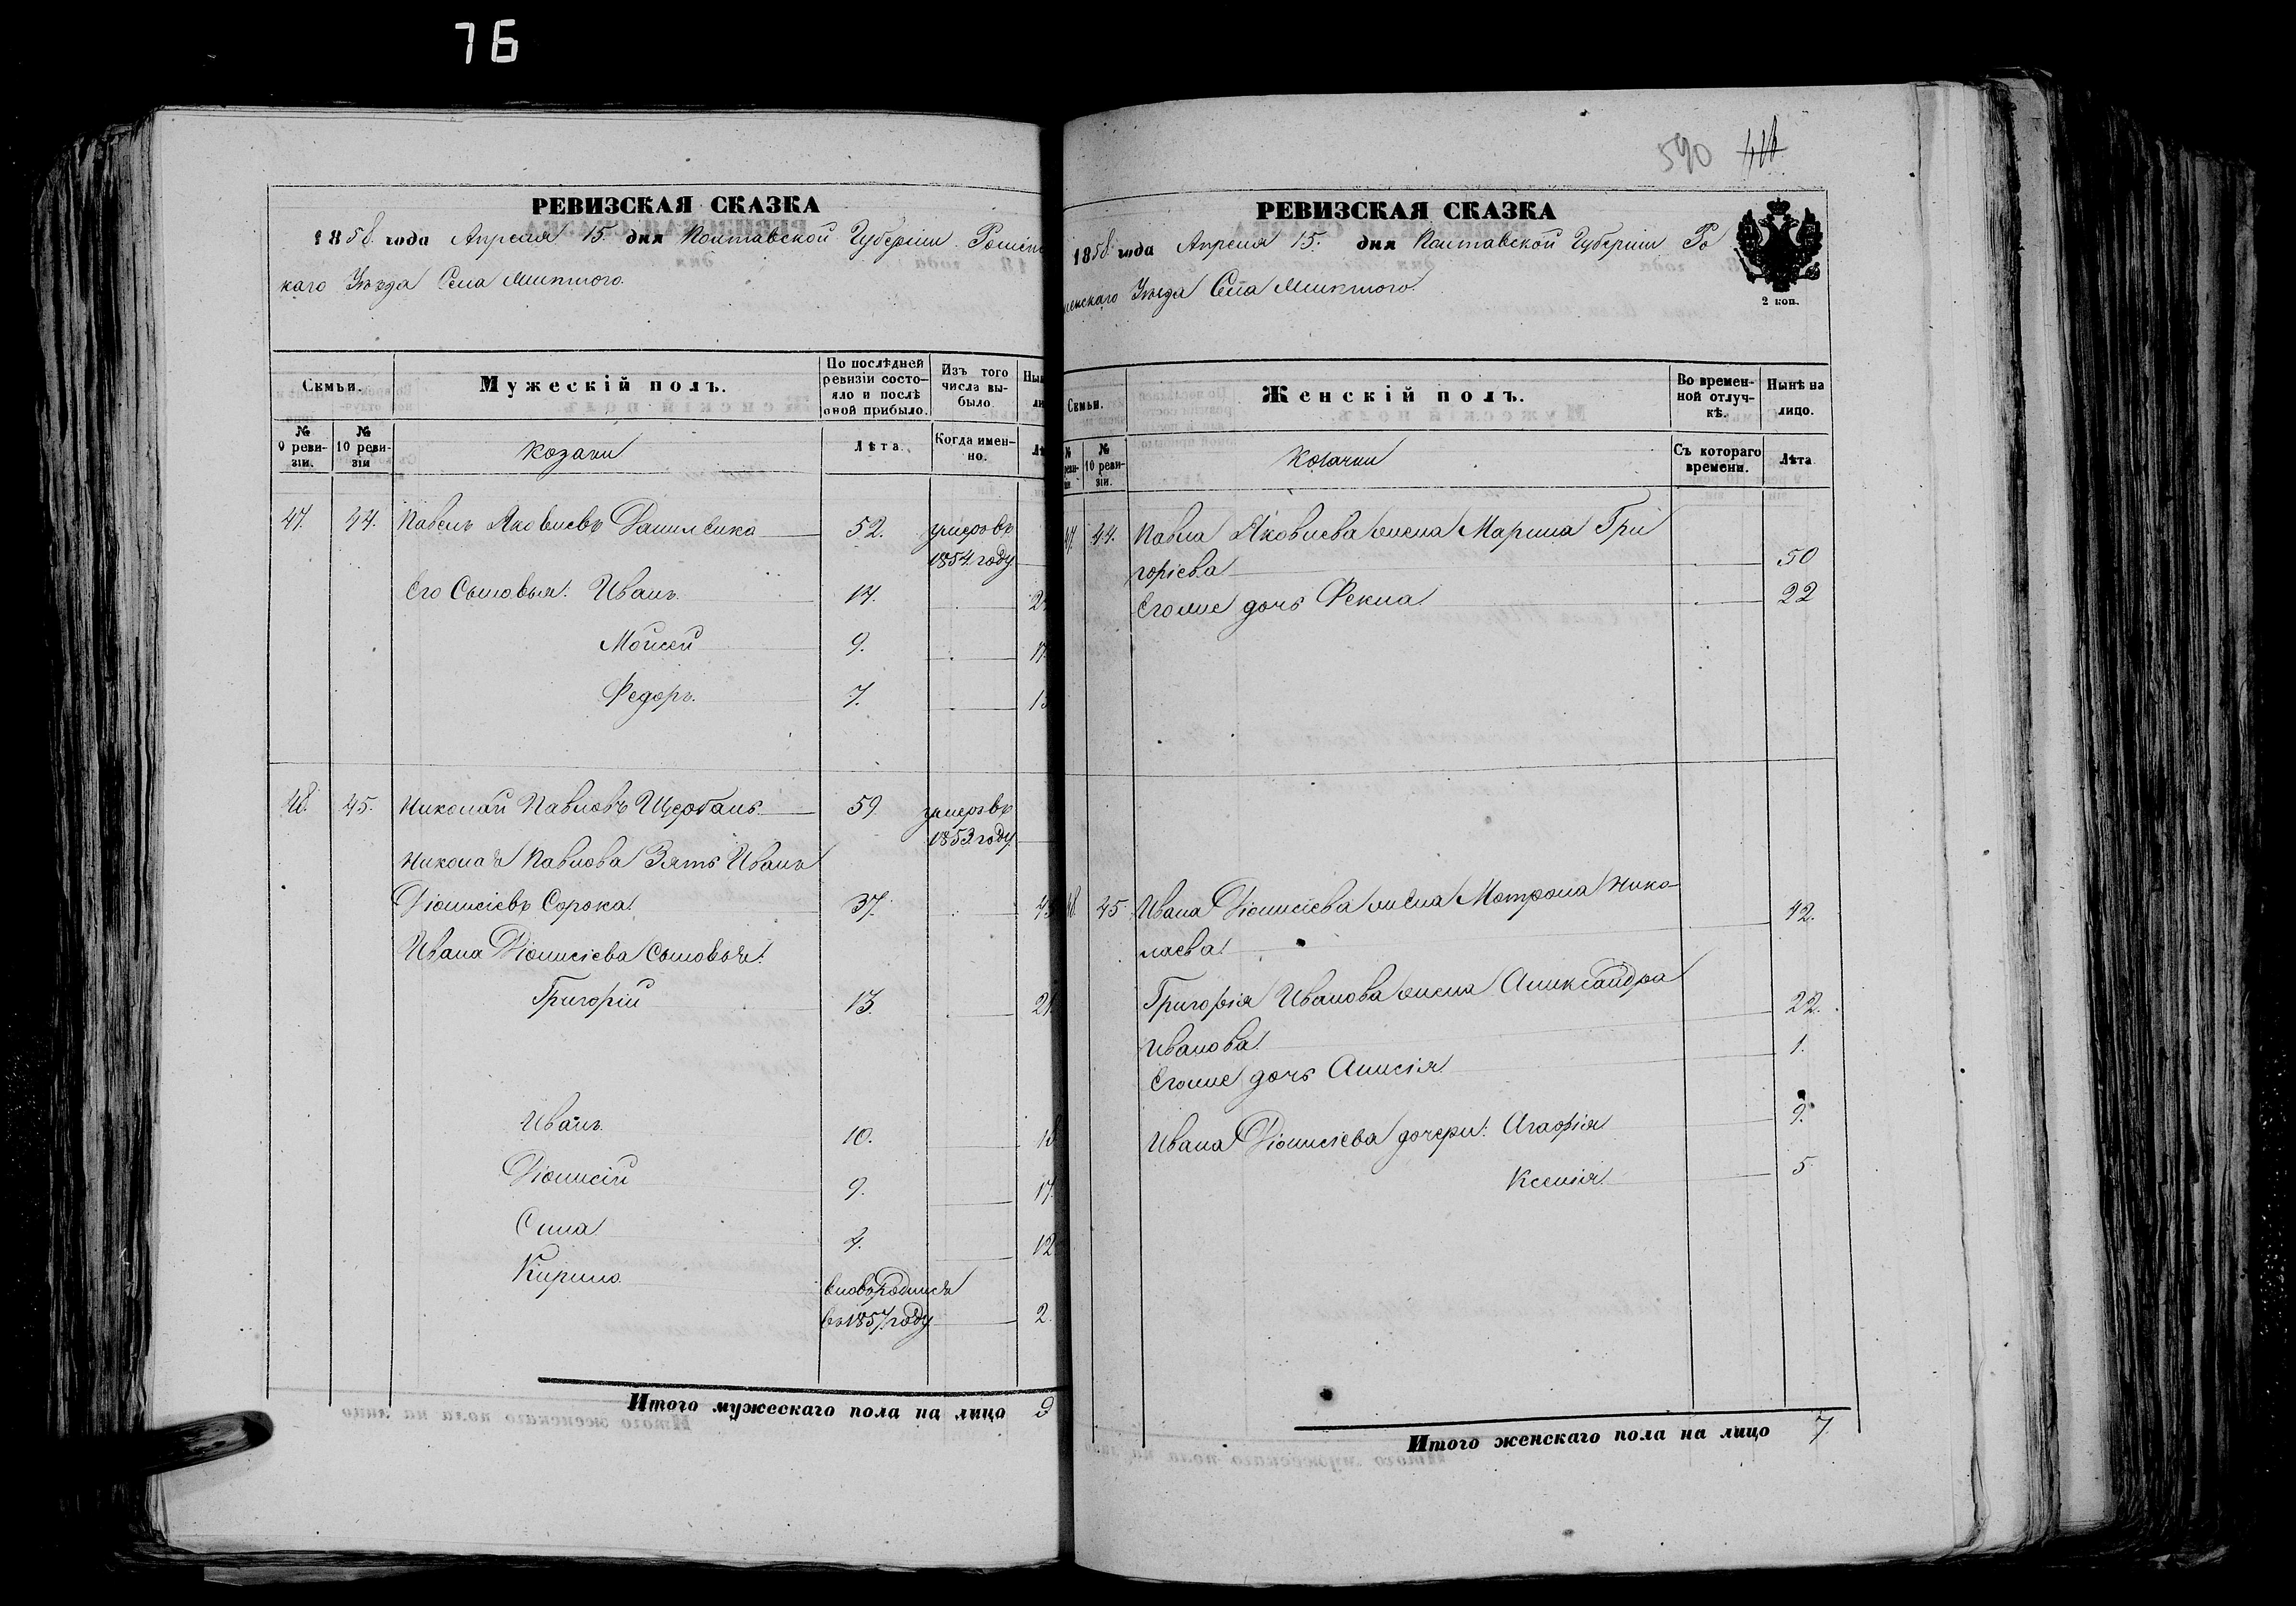 76
РЕВИЗСКАЯ СКАЗКА
1858 года Апреля 15. дня Полтавской Губерніи Роменс
каго Уѣзда Села
Семьи.
Мужескій полъ.
По послѣдней ревизіи состояло и послѣ оной прибыло.
Изъ того числа выбыло.
№ 9 ревизіи.
№ 10 ревизіи
Козаки
Лѣта.
Когда именно.
47. 44. Павелъ Яковлевъ Даниленко 52. умеръ въ
1854 году
Его Сыновья: Иванъ 17.
Мойсей 9. 17.
Федоръ. 7.
48. 45. Николай Павловъ Щербань 59. умеръ въ
1853 году
Николая Павлова Зять Иванъ
Діонисіевъ Сорока 37.
Ивана Діонисіева Сыновья:
Григорій 13. 21
Иванъ 10. 18
Діонисій 9. 17.
Сила 4. 12
Кирило вновь родился
въ 1857 году 2.
Итого мужескаго пола на лицо 9
590
РЕВИЗСКАЯ СКАЗКА
1858 года Апреля 15. дня Полтавской Губерніи Ро
менскаго Уѣзда Села
2 коп.
Семьи.
Женскій полъ.
Во временной отлучкѣ.
Нынѣ на лицо.
№ 10 ревизіи.
Козачки
Съ котораго времени.
Лѣта
47. 44. Павла Яковлева жена Марина Гри
горіева 50
Его же дочь Фекла 22
48. 45. Ивана Діонисіева жена Мотрона Нико-
лаева 42.
Григорія Иванова жена Александра
Иванова 22.
Его же дочь Анисія 1.
Ивана Діонисіева дочери: Агафія 9.
Ксенія 5
Итого женскаго пола на лицо 7